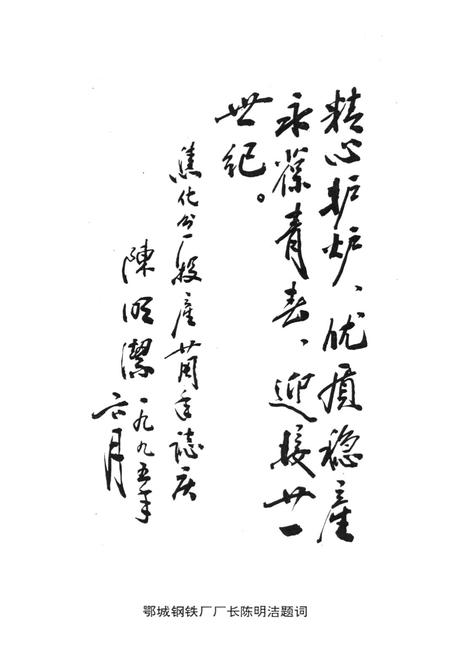 精心护炉、优质稳産
永葆青春、迎接廿一
世纪。
焦化分厂投産廿周年誌庆
陳明潔 一九九五年
六月
鄂城钢铁厂厂长陈明洁题词